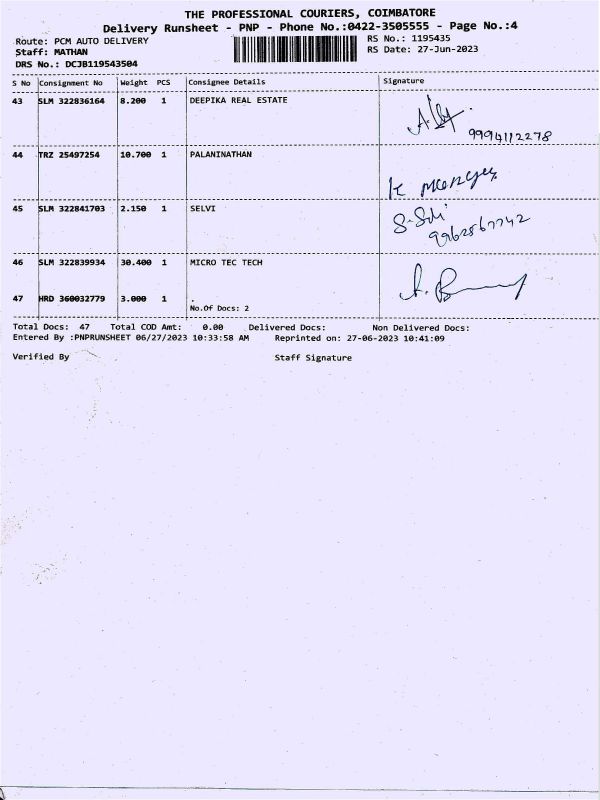 THE PROFESSIONAL COURIERS, COIMBATORE
Delivery Runsheet - PNP - Phone No.:0422-3505555 - Page No.:4
Route: PCM AUTO DELIVERY RS No.: 1195435
Staff: MATHAN RS Date: 27-Jun-2023
DRS No.: DCJB119543504
S No Consignment No Weight PCS Consignee Details Signature
43 SLM 322836164 8.200 1 DEEPIKA REAL ESTATE
9994112278
44 TRZ 25497254 10.700 1 PALANINATHAN
45 SLM 322841703 2.150 1 SELVI
9962567742
46 SLM 322839934 30.400 1 MICRO TEC TECH
47 HRD 360032779 3.000 1 .
No.Of Docs: 2
Total Docs: 47 Total COD Amt: 0.00 Delivered Docs: Non Delivered Docs:
Entered By :PNPRUNSHEET 06/27/2023 10:33:58 AM Reprinted on: 27-06-2023 10:41:09
Verified By Staff Signature